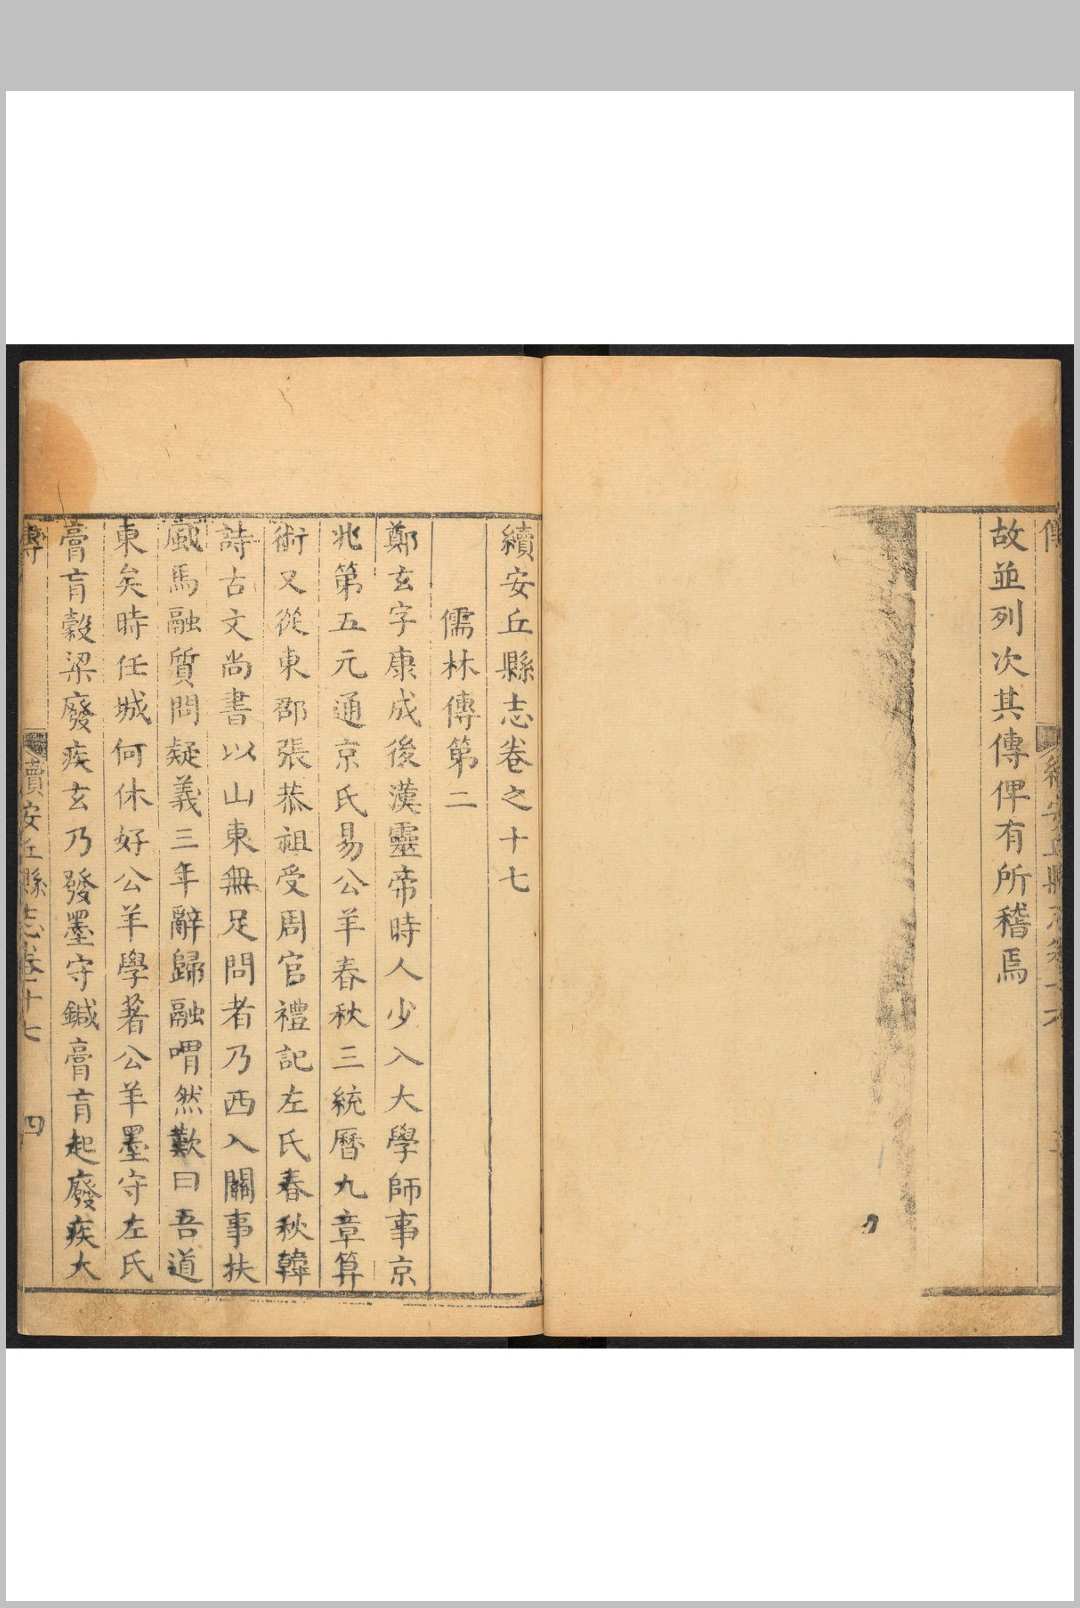 故並列次其傳俾有所稽焉
續安丘縣志卷之十七
儒林傳第二
鄭玄字康成後漢靈帝時人少入大學師事京
兆第五元通京氏易公羊春秋三統曆九章算
術又從東郡張恭祖受周官禮記左氏春秋韓
詩古文尚書以山東無足問者乃西入關事扶
風馬融質問疑義三年辭歸融喟然歎曰吾道
東矣時任城何休好公羊學著公羊墨守左氏
膏肓穀梁廢疾玄乃發墨守鍼膏肓起廢疾大
傳 續安丘縣志卷十七 四